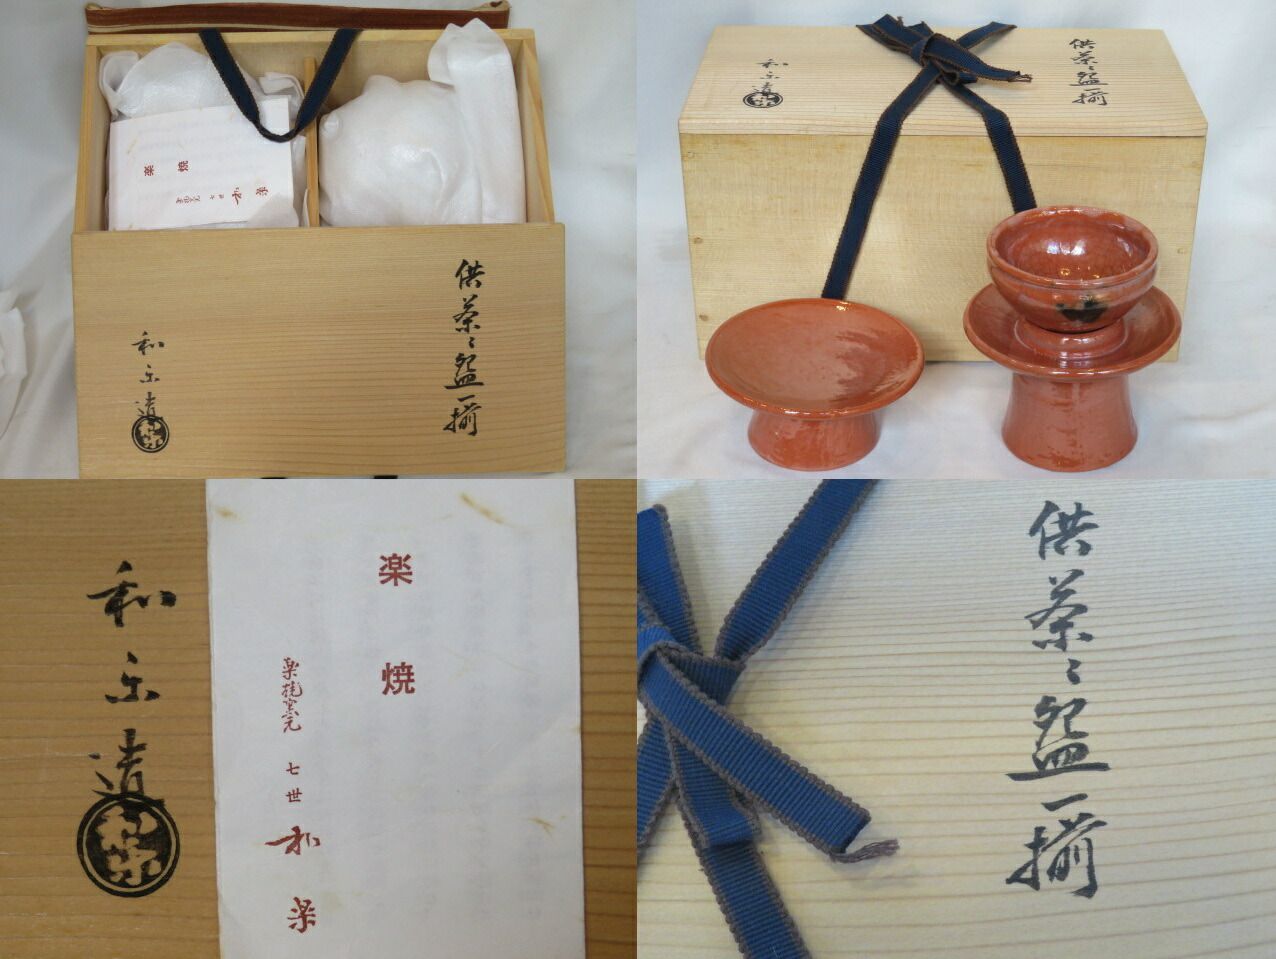 楽焼
七世
和楽
供茶々盌一揃
和楽造
和楽
供茶々盌一揃
和楽造
和楽
和楽造
和楽
楽焼
楽焼窯元
七世
和楽
供茶々盌一揃